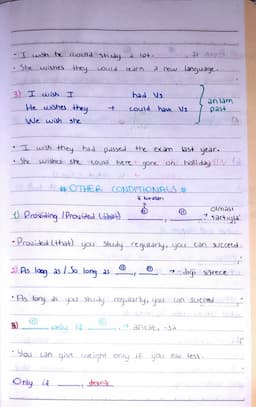 • I wish he would study a lot.
• She wishes they could learn a new language.
3) I wish I had V3
He wishes they + could have V3 anlam past
We wish she
• I wish they had passed the exam last year.
• She wishes she could have gone on holiday
* OTHER CONDITIONALS *
1) Providing / Provided (that) ☺ , ☺ olması şartıyla
• Provided (that) you study regularly, you can succeed
2) As long as / So long as ☺ , ☺ → sürece
• As long as you study regularly, you can succeed
3) ☺ only if ☺ → ancak, -sa
• You can give weight only if you eat less.
Only if , devrik